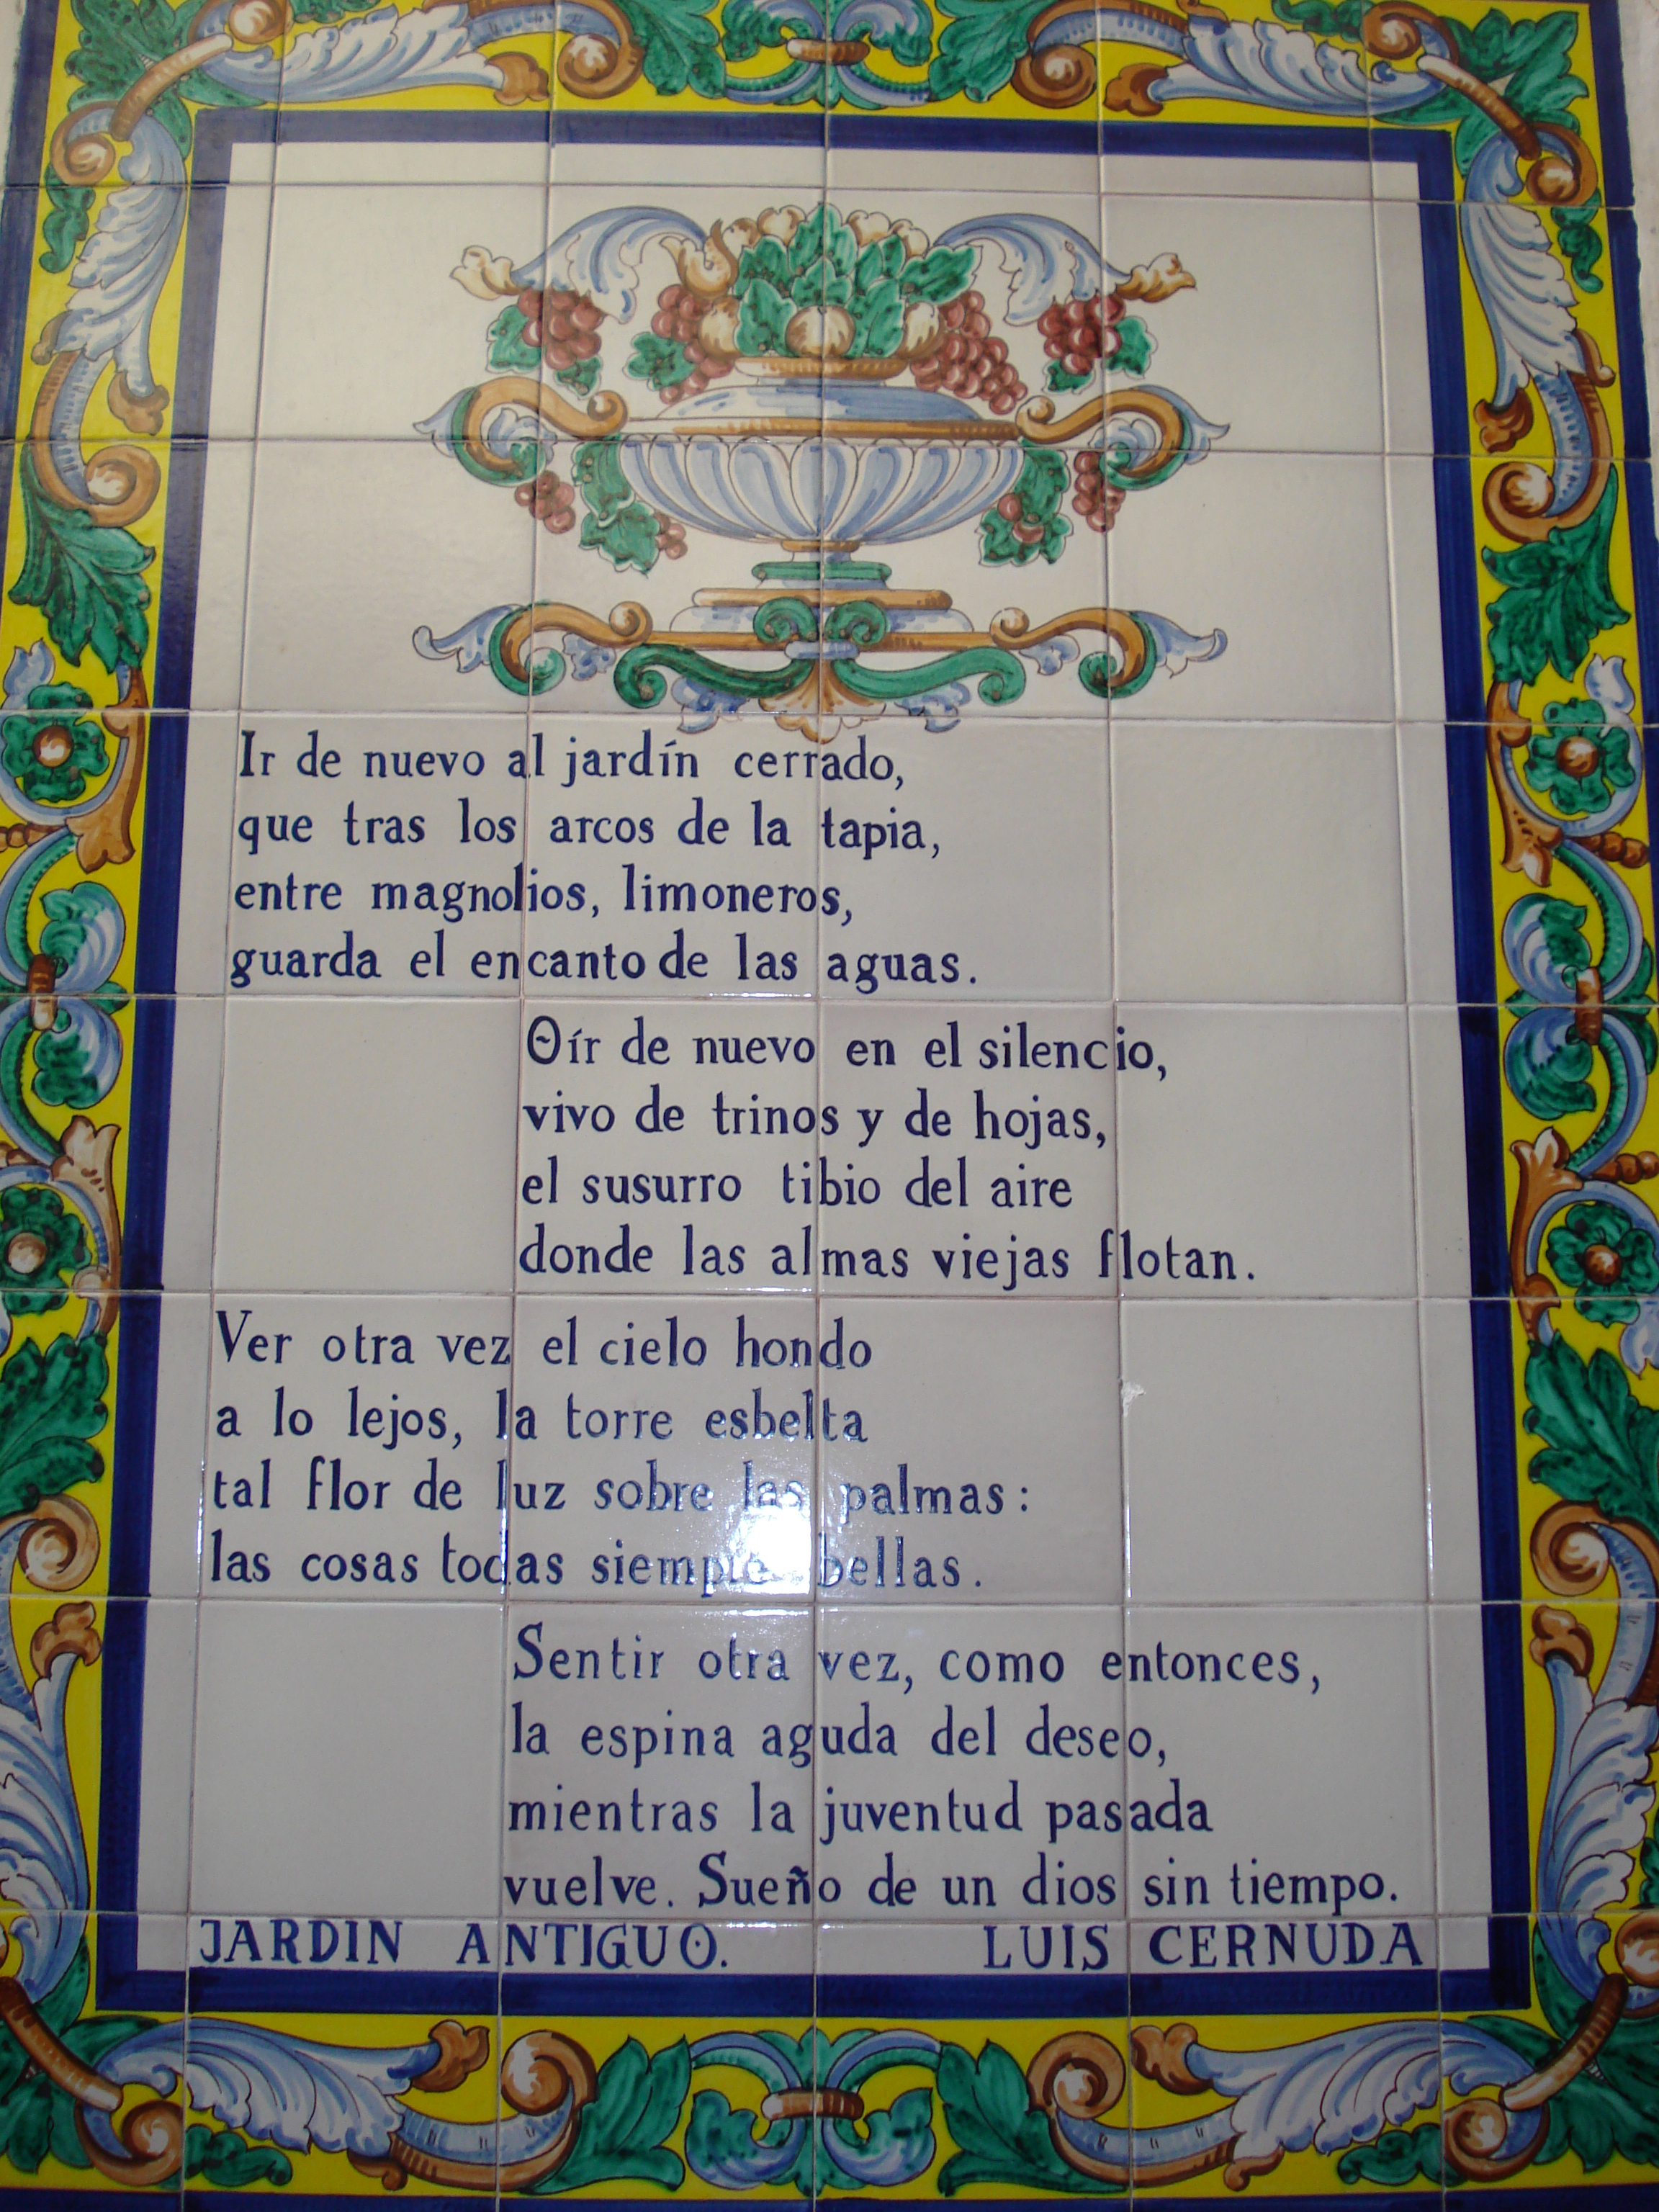 Ir de nuevo al jardín cerrado,
que tras los arcos de la tapia,
entre magnolios, limoneros,
guarda el encanto de las aguas.
Oír de nuevo en el silencio,
vivo de trinos y de hojas,
el susurro tibio del aire
donde las almas viejas flotan.
Ver otra vez el cielo hondo
a lo lejos, la torre esbelta
tal flor de luz sobre las palmas:
las cosas todas siempre bellas.
Sentir otra vez, como entonces,
la espina aguda del deseo,
mientras la juventud pasada
vuelve. Sueño de un dios sin tiempo.
JARDIN ANTIGUO. LUIS CERNUDA